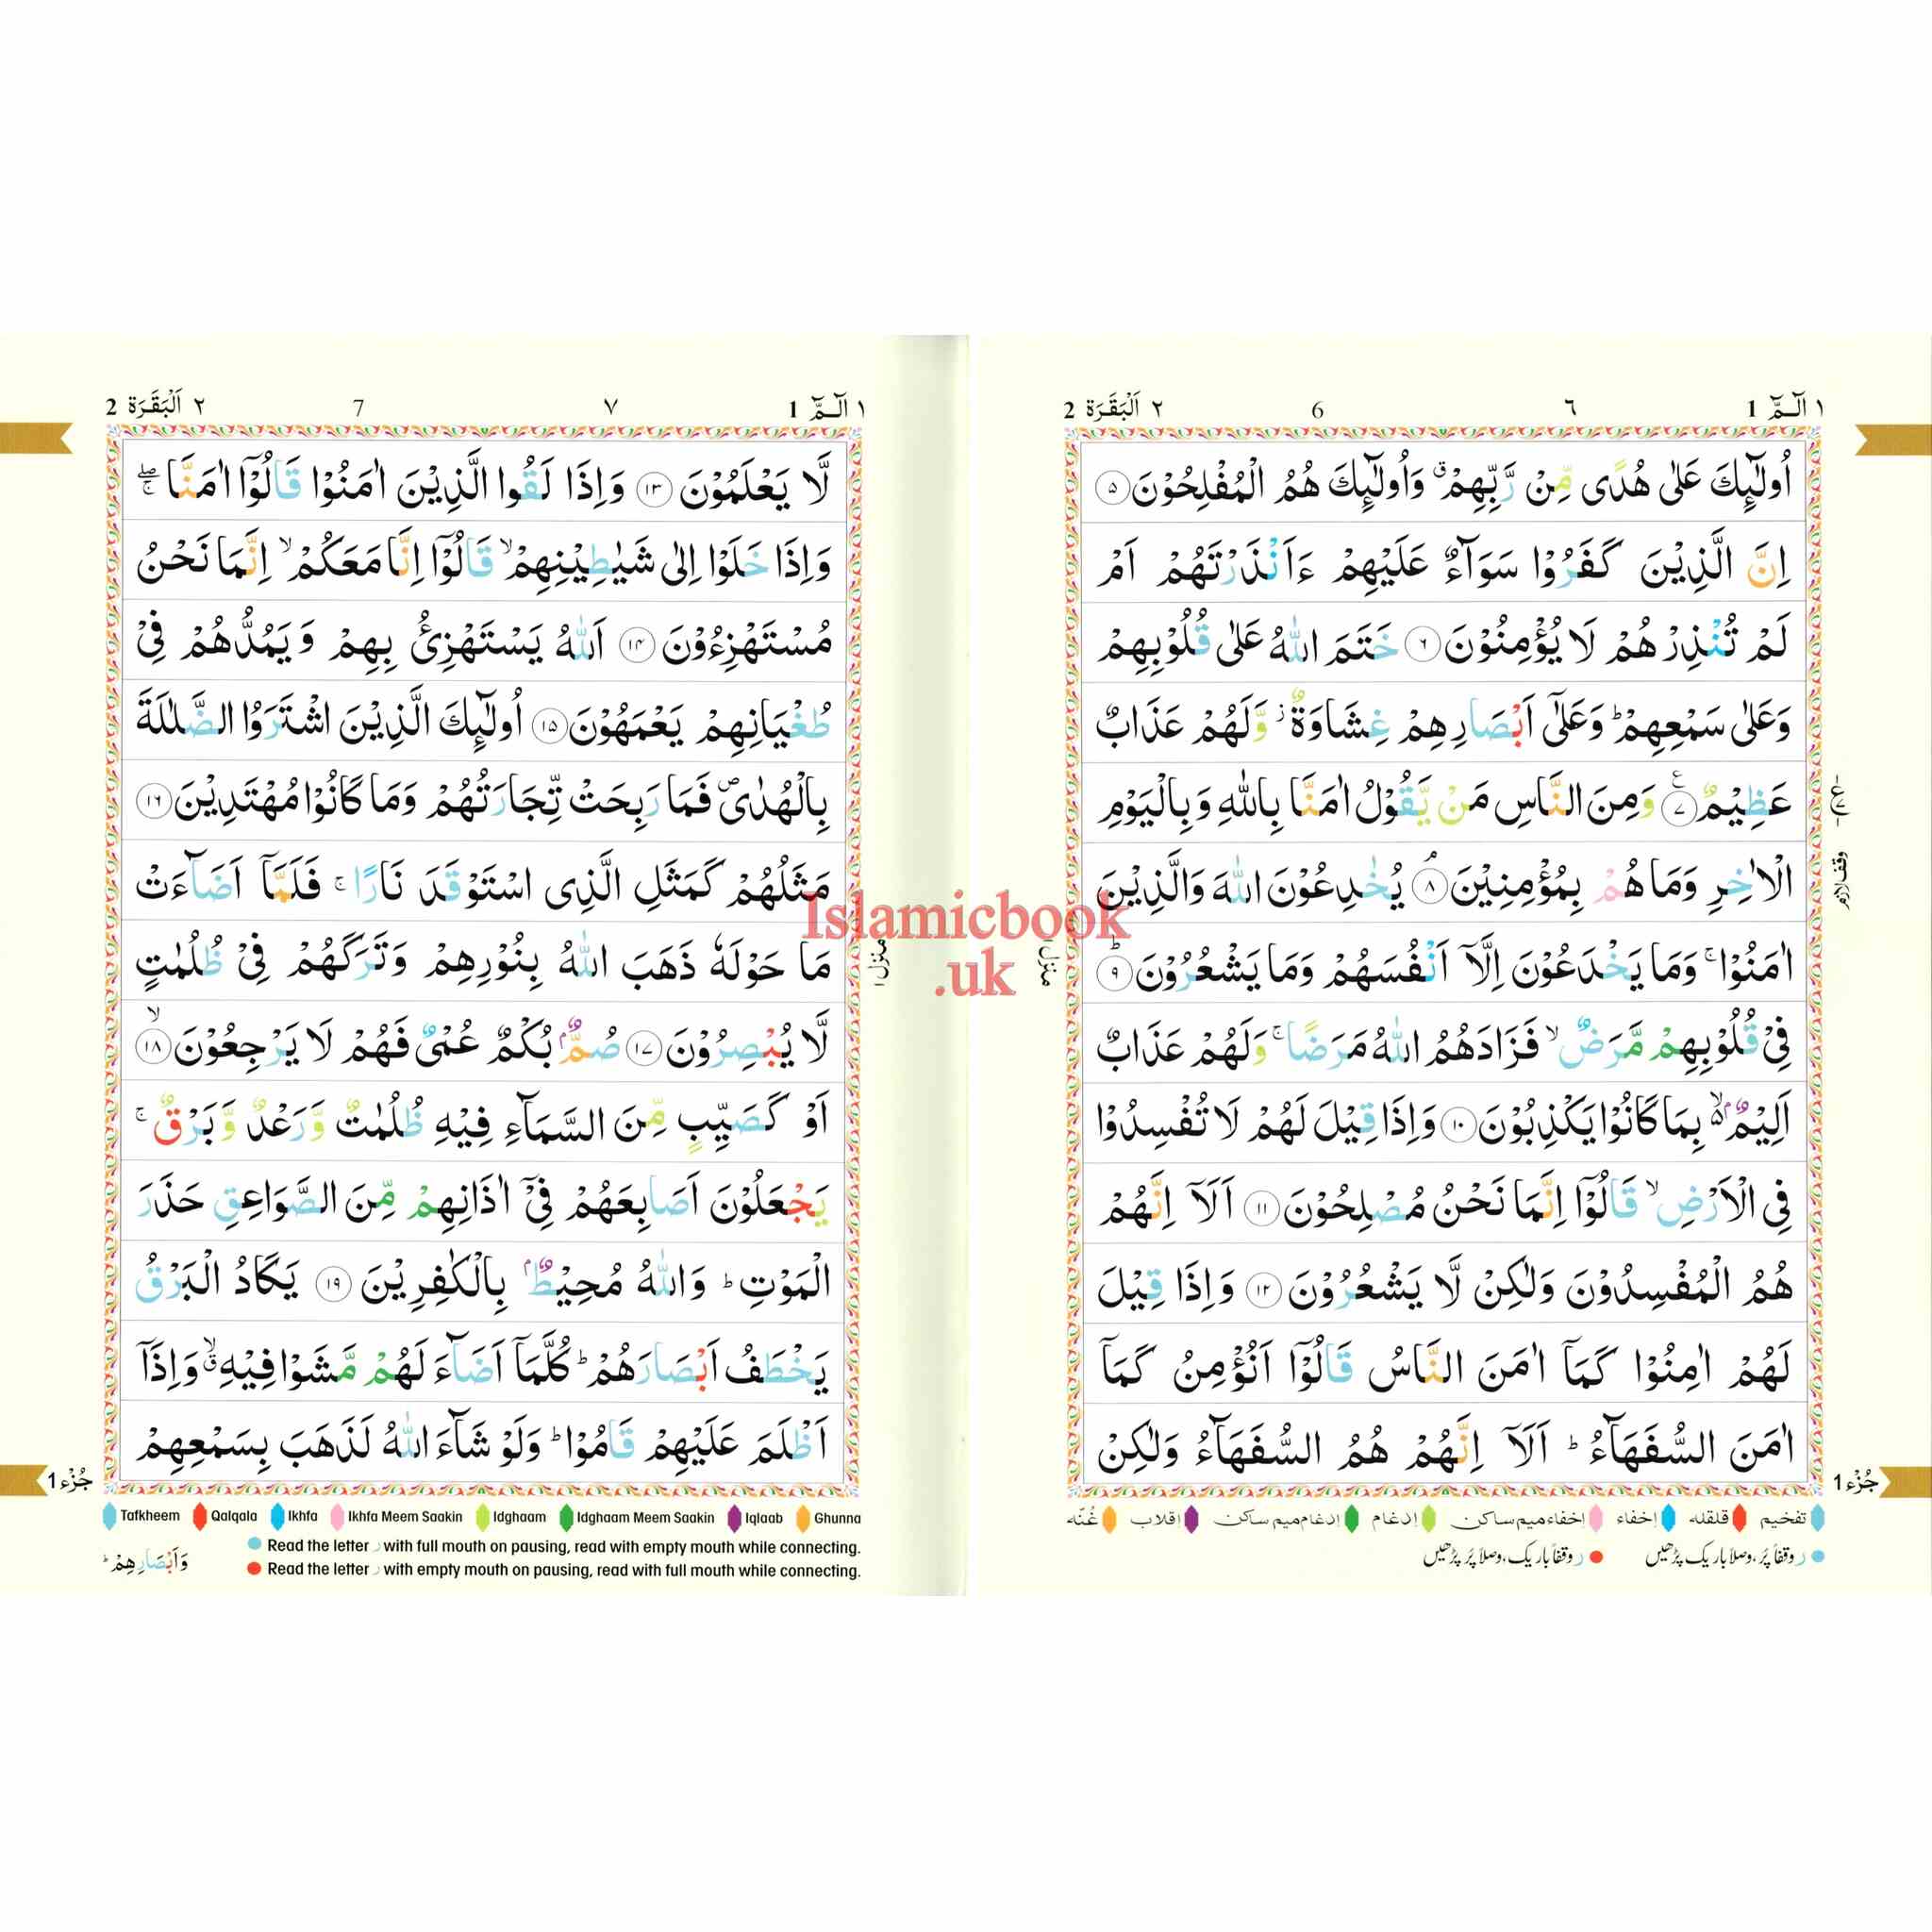 ١ الٓمّٓ 1
٦
6
٢ اَلْبَقَرَة 2
اُولٰٓئِكَ عَلٰى هُدًى مِّنْ رَّبِّهِمْ ۗ وَاُولٰٓئِكَ هُمُ الْمُفْلِحُوْنَ ﴿۵﴾
اِنَّ الَّذِيْنَ كَفَرُوْا سَوَآءٌ عَلَيْهِمْ ءَاَنْذَرْتَهُمْ اَمْ
لَمْ تُنْذِرْهُمْ لَا يُؤْمِنُوْنَ ﴿۶﴾ خَتَمَ اللّٰهُ عَلٰى قُلُوْبِهِمْ
وَعَلٰى سَمْعِهِمْ ؕ وَعَلٰٓى اَبْصَارِهِمْ غِشَاوَةٌ ؗ وَّلَهُمْ عَذَابٌ
عَظِيْمٌ ﴿۷﴾ وَمِنَ النَّاسِ مَنْ يَّقُوْلُ اٰمَنَّا بِاللّٰهِ وَبِالْيَوْمِ
الْاٰخِرِ وَمَا هُمْ بِمُؤْمِنِيْنَ ۘ ﴿۸﴾ يُخٰدِعُوْنَ اللّٰهَ وَالَّذِيْنَ
اٰمَنُوْا ۚ وَمَا يَخْدَعُوْنَ اِلَّاۤ اَنْفُسَهُمْ وَمَا يَشْعُرُوْنَ ؕ ﴿۹﴾
فِيْ قُلُوْبِهِمْ مَّرَضٌ ۙ فَزَادَهُمُ اللّٰهُ مَرَضًا ۚ وَلَهُمْ عَذَابٌ
اَلِيْمٌۢ ۙ۬ بِمَا كَانُوْا يَكْذِبُوْنَ ﴿۱۰﴾ وَاِذَا قِيْلَ لَهُمْ لَا تُفْسِدُوْا
فِي الْاَرْضِ ۙ قَالُوْۤا اِنَّمَا نَحْنُ مُصْلِحُوْنَ ﴿۱۱﴾ اَلَاۤ اِنَّهُمْ
هُمُ الْمُفْسِدُوْنَ وَلٰكِنْ لَّا يَشْعُرُوْنَ ﴿۱۲﴾ وَاِذَا قِيْلَ
لَهُمْ اٰمِنُوْا كَمَاۤ اٰمَنَ النَّاسُ قَالُوْۤا اَنُؤْمِنُ كَمَاۤ
اٰمَنَ السُّفَهَآءُ ؕ اَلَاۤ اِنَّهُمْ هُمُ السُّفَهَآءُ وَلٰكِنْ
ع
وقف لازم
منزل ١
جُزْء 1
تفخيم قلقله إخفاء إخفاء ميم ساكن إدغام إدغام ميم ساكن إقلاب غُنّه
ر وقفاً پُر، وصلاً باریک پڑھیں ر وقفاً باریک، وصلاً پُر پڑھیں
١ الٓمّٓ 1
٧
7
٢ اَلْبَقَرَة 2
لَّا يَعْلَمُوْنَ ﴿۱۳﴾ وَاِذَا لَقُوا الَّذِيْنَ اٰمَنُوْا قَالُوْۤا اٰمَنَّا ۖۚ
وَاِذَا خَلَوْا اِلٰى شَيٰطِيْنِهِمْ ۙ قَالُوْۤا اِنَّا مَعَكُمْ ۙ اِنَّمَا نَحْنُ
مُسْتَهْزِءُوْنَ ﴿۱۴﴾ اَللّٰهُ يَسْتَهْزِئُ بِهِمْ وَيَمُدُّهُمْ فِيْ
طُغْيَانِهِمْ يَعْمَهُوْنَ ﴿۱۵﴾ اُولٰٓئِكَ الَّذِيْنَ اشْتَرَوُا الضَّلٰلَةَ
بِالْهُدٰى ۪ فَمَا رَبِحَتْ تِّجَارَتُهُمْ وَمَا كَانُوْا مُهْتَدِيْنَ ﴿۱۶﴾
مَثَلُهُمْ كَمَثَلِ الَّذِى اسْتَوْقَدَ نَارًا ۚ فَلَمَّاۤ اَضَآءَتْ
مَا حَوْلَهٗ ذَهَبَ اللّٰهُ بِنُوْرِهِمْ وَتَرَكَهُمْ فِيْ ظُلُمٰتٍ
لَّا يُبْصِرُوْنَ ﴿۱۷﴾ صُمٌّۢ بُكْمٌ عُمْيٌ فَهُمْ لَا يَرْجِعُوْنَ ۙ ﴿۱۸﴾
اَوْ كَصَيِّبٍ مِّنَ السَّمَآءِ فِيْهِ ظُلُمٰتٌ وَّرَعْدٌ وَّبَرْقٌ ۚ
يَجْعَلُوْنَ اَصَابِعَهُمْ فِيْۤ اٰذَانِهِمْ مِّنَ الصَّوَاعِقِ حَذَرَ
الْمَوْتِ ؕ وَاللّٰهُ مُحِيْطٌۢ بِالْكٰفِرِيْنَ ﴿۱۹﴾ يَكَادُ الْبَرْقُ
يَخْطَفُ اَبْصَارَهُمْ ؕ كُلَّمَاۤ اَضَآءَ لَهُمْ مَّشَوْا فِيْهِ ۙۗ وَاِذَاۤ
اَظْلَمَ عَلَيْهِمْ قَامُوْا ؕ وَلَوْ شَآءَ اللّٰهُ لَذَهَبَ بِسَمْعِهِمْ
منزل ١
جُزْء 1
Tafkheem Qalqala Ikhfa Ikhfa Meem Saakin Idghaam Idghaam Meem Saakin Iqlaab Ghunna
Read the letter ر with full mouth on pausing, read with empty mouth while connecting.
Read the letter ر with empty mouth on pausing, read with full mouth while connecting.
وَاَبْصَارِهِمْ ؕ
Islamicbook
.uk